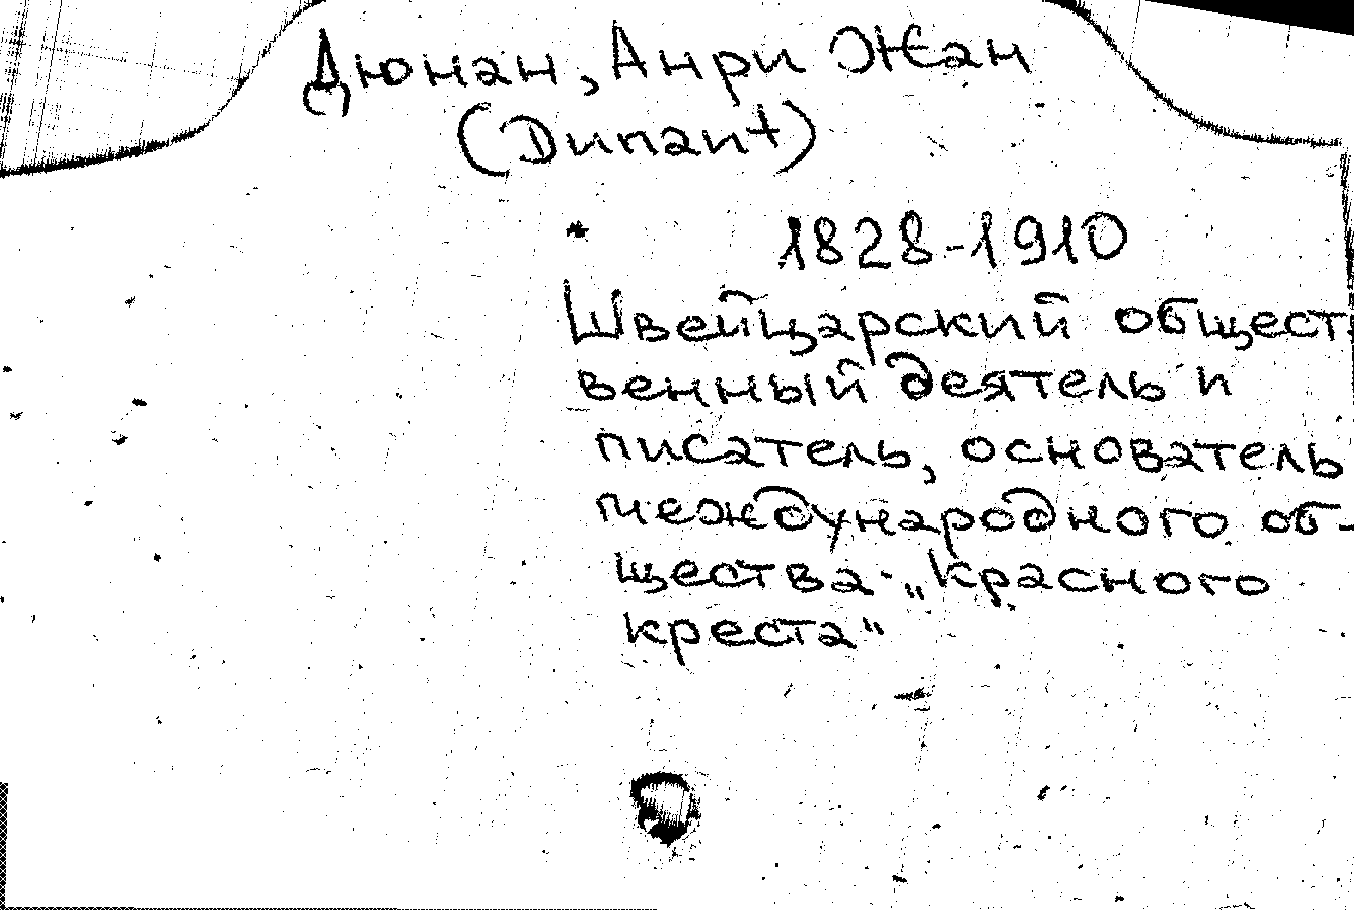 Дюнан, Анри Жан
(Dunant)
* 1828-1910
Швейцарский общест-
венный деятель и
писатель, основатель
международного об-
щества - „Красного
креста"